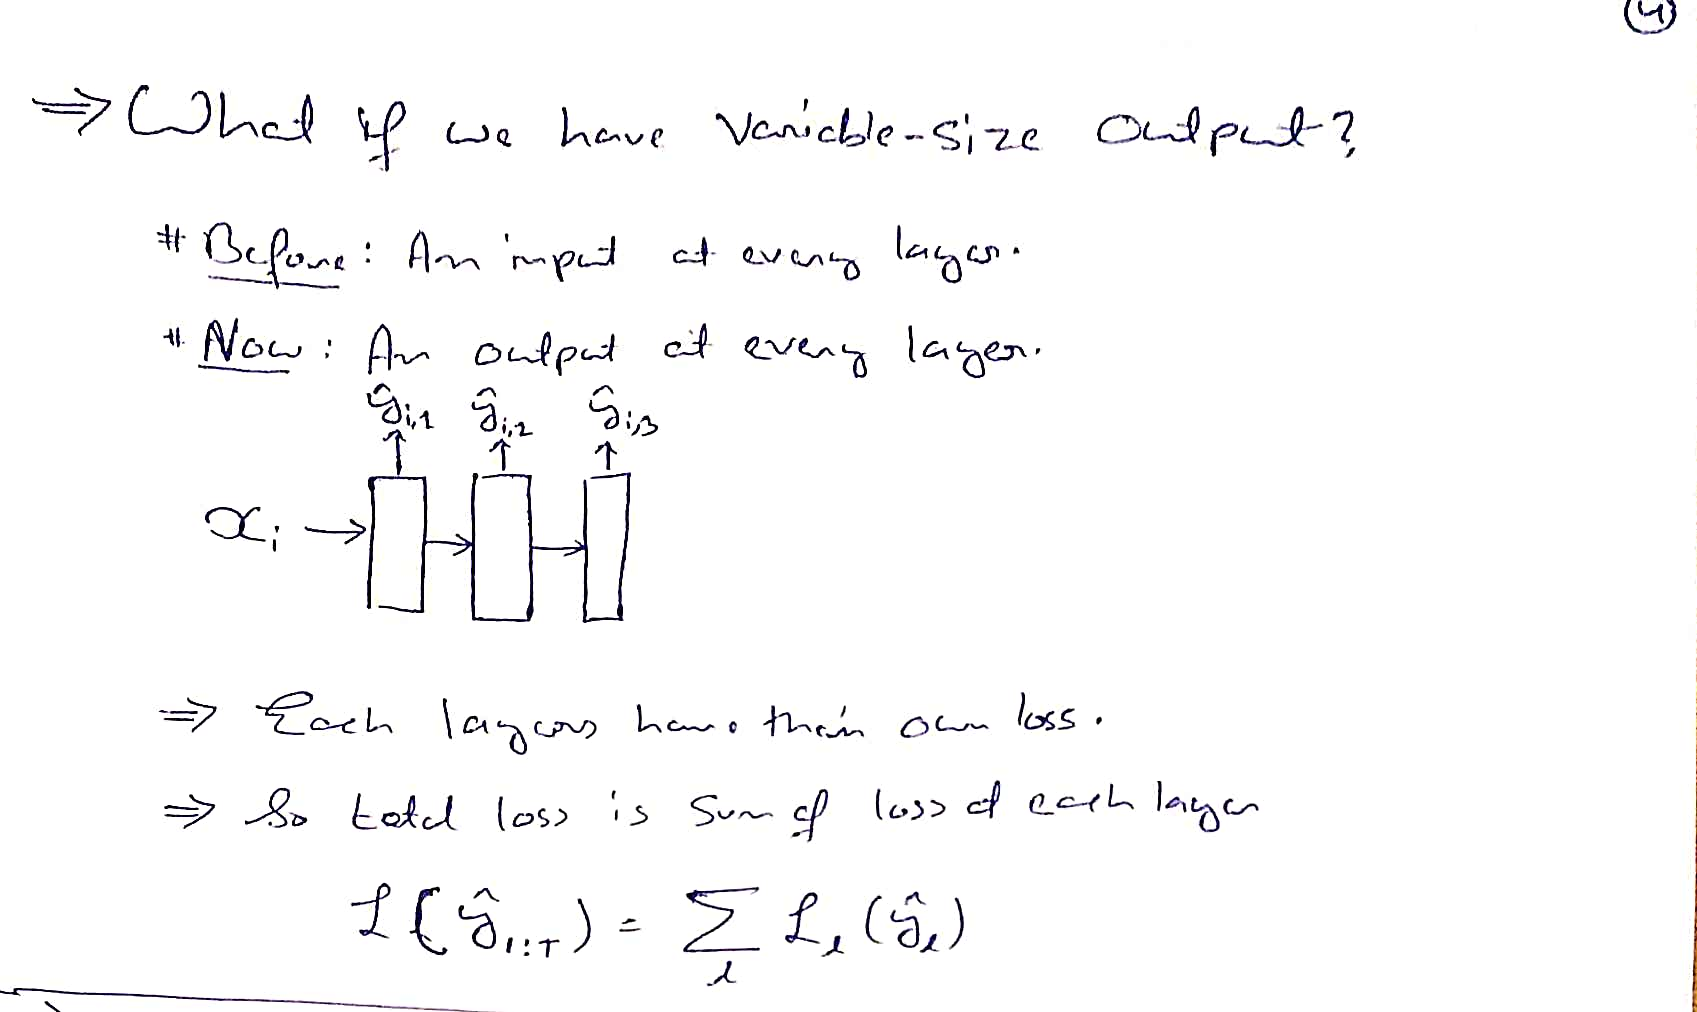 (4)
⇒ What if we have Variable-Size Output?
# Before: An input at every layer.
# Now: An output at every layer.
ŷi,1 ŷi,2 ŷi,3
xi →
⇒ Each layers have their own loss.
⇒ So total loss is sum of loss of each layer
L(ŷ1:T) = Σl Ll(ŷl)